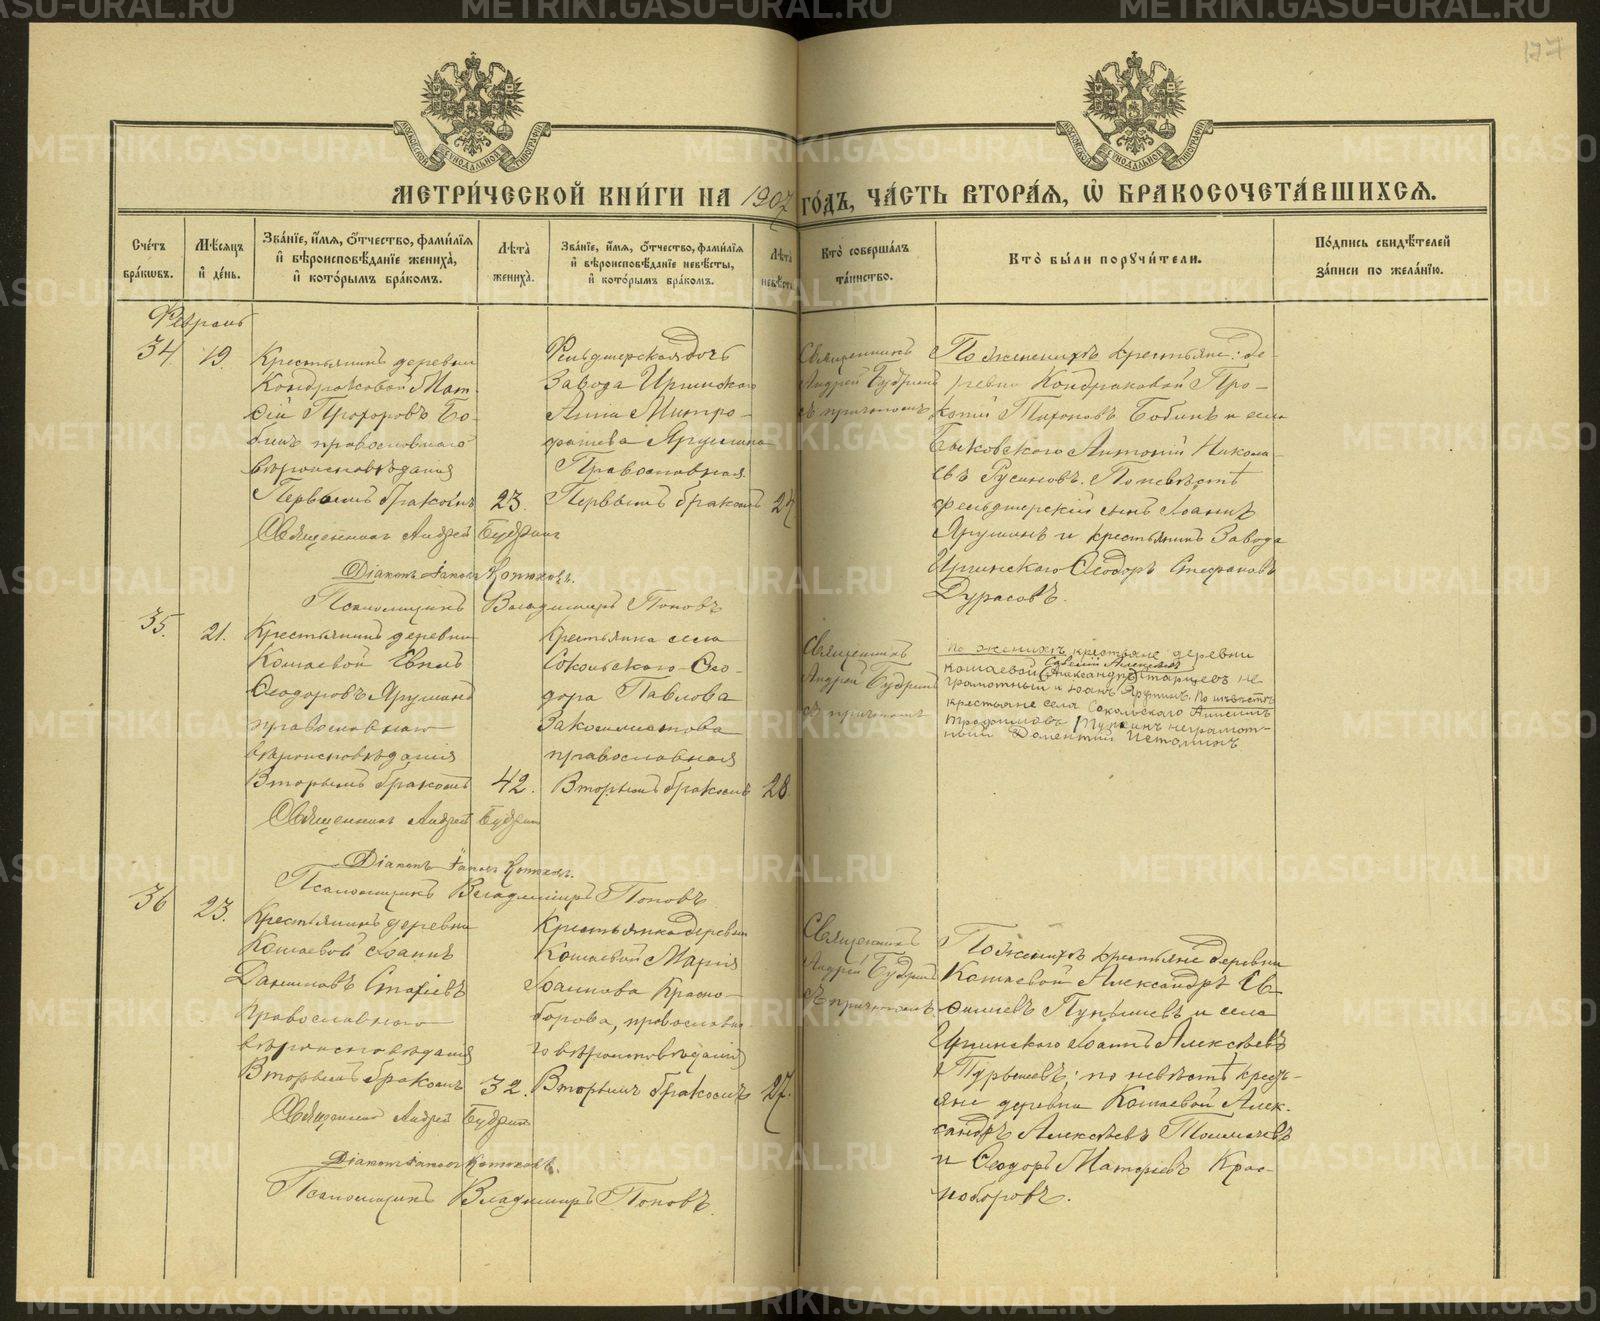 177
МЕТРИ́ЧЕСКОЙ КНИ́ГИ НА 1907 ГО́ДЪ, ЧА́СТЬ ВТОРА́Я, Ѡ҆ БРАКОСОЧЕТА́ВШИХСЯ.
Сче́тъ бра́кѡвъ.
Мѣ́сяцъ и҆ де́нь.
Зва́нїе, и҆́мя, ѻ҆́тчество, фами́лїя и҆ вѣроисповѣ́данїе жениха̀, и҆ кото́рымъ бра́комъ.
Лѣта̀ жениха̀.
Зва́нїе, и҆́мя, ѻ҆́тчество, фами́лїя и҆ вѣроисповѣ́данїе невѣ́сты, и҆ кото́рымъ бра́комъ.
Лѣта̀ невѣ́сты.
Кто̀ соверша́лъ та́инство.
Кто̀ бы́ли порꙋчи́тели.
По́дпись свидѣ́телей за́писи по жела́нїю.
Февраль
34
19.
Крестьянинъ деревни
Кондраковой Мат-
ѳій Прохоровъ Бо-
бинъ православнаго
вѣроисповѣданія
Первымъ бракомъ
23.
Фельдшерская дочь
Завода Иргинскаго
Анна Митро-
фанева Ярушина
Православная.
Первымъ бракомъ
Священникъ
Андрей Будринъ
съ причтомъ
По женихѣ крестьяне: де-
ревни Кондраковой Про-
копій Тихоновъ Бобинъ и села
Быковскаго Антоній Никола-
евъ Русиновъ. По невѣстѣ
фельдшерскій сынъ Іоаннъ
Ярушинъ и крестьянинъ Завода
Иргинскаго Ѳеодоръ Стефановъ
Дурасовъ.
Священникъ Андрей Будринъ
Діаконъ Котюковъ.
Псаломщикъ Владимиръ Поповъ
35.
21.
Крестьянинъ деревни
Кошаевой
Ѳеодоровъ Ярушинъ
православнаго
вѣроисповѣданія
Вторымъ бракомъ
42.
Крестьянка села
Сокольскаго Ѳео-
дора Павлова
православная
Вторымъ бракомъ
28.
Священникъ
Андрей Будринъ
съ причтомъ
По женихѣ крестьяне деревни
Кошаевой Савелій Алексѣевъ (Александръ) Старцевъ не
грамотный и Іоанъ Ярушинъ. По невѣстѣ
крестьяне села Сокольскаго
Трофимовъ неграмот-
ный Дометий Истоминъ
Священникъ Андрей Будринъ
Діаконъ Котюковъ.
Псаломщикъ Владимиръ Поповъ.
36
23.
Крестьянинъ деревни
Кошаевой Іоаннъ
Даниловъ
Православнаго
вѣроисповѣданія
Вторымъ бракомъ
32.
Крестьянка деревни
Кошаевой Марія
Іоаннова Красно-
борова, православна-
го вѣроисповѣданія
Вторымъ бракомъ
27.
Священникъ
Андрей Будринъ
съ причтомъ.
По женихѣ крестьяне деревни
Кошаевой Александръ Ев-
ѳимьевъ Пупышевъ и села
Иргинскаго Іоаннъ Алексѣевъ
Турышевъ; по невѣстѣ кресть-
яне деревни Кошаевой Алек-
сандръ Алексѣевъ Толмачевъ
и Ѳеодоръ Матфіевъ Крас-
ноборовъ.
Священникъ Андрей Будринъ
Діаконъ Котюковъ.
Псаломщикъ Владимиръ Поповъ.
METRIKI.GASO-URAL.RU